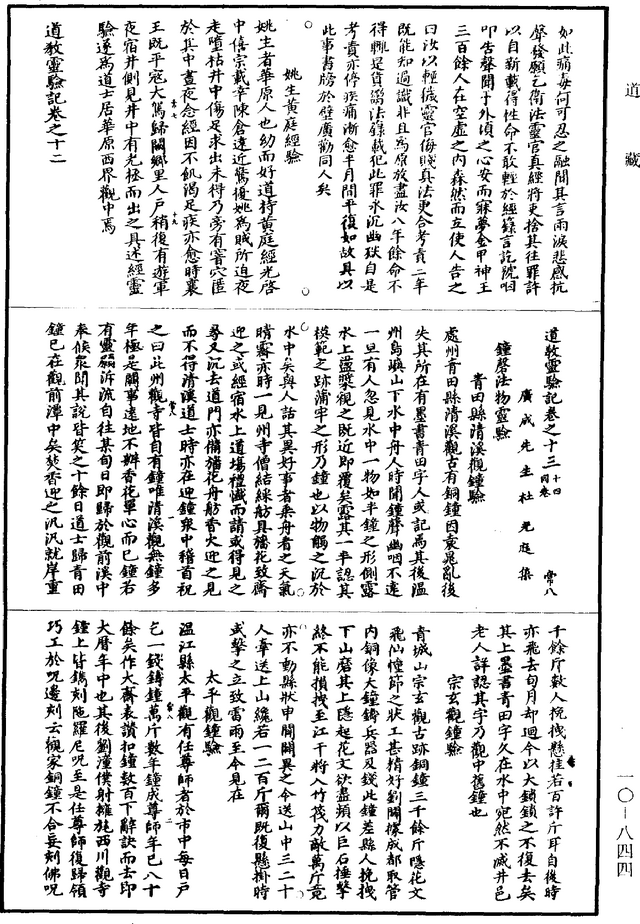 道藏
如此痛毒何可忍之融聞其言雨淚悲感抗
聲發願乞衛法靈官真經將吏捨其往罪許
以自新載得性命不敢輕於經籙言訖號咽
叩告聲聞于外頃之心安而寐夢金甲神王
三百餘人在空虛之內森然而立使人告之
曰汝以輕穢靈官侮賤真法更合考責二年
既能知過識非且為原放盡汝八年餘命不
得輒是貨鬻法籙載犯此罪永沉幽獄自是
考責亦停疾痛漸愈半月間平復如故具以
此事書牓於壁廣勸同人矣
姚生黃庭經驗
姚生者華原人也幼而好道持黃庭經光啓
中僖宗載幸陳倉遠近驚擾姚為賊所迫夜
走墮枯井中傷足求出未得乃旁有窨穴匿
於其中晝夜念經因不飢渴足疾亦愈時襄
王既平寇大駕歸闕鄉里人戶稍復有遊軍
夜宿井側見井中有光拯而出之具述經靈
驗遂為道士居華原西界觀中焉
道教靈驗記卷之十二
道教靈驗記卷之十三 十四同卷 常八
廣成先生杜光庭集
鐘磬法物靈驗
青田縣清溪觀鐘驗
處州青田縣清溪觀古有銅鐘因袁晁亂後
失其所在有墨書青田字人或記焉其後溫
州島嶼山下水中舟人時聞鐘聲幽咽不遠
一旦有人忽見水中一物如半鐘之形側露
水上盪槳視之既近即覆矣露其一半認其
模範之跡蒲牢之形乃鐘也以物觸之沉於
水中矣與人話其異好事者乘舟者之天氣
晴霽亦時一見州寺僧結綵舫具旛花致齋
迎之或經宿水上道場禮懺而請或得見之
尋又沉去道門亦備旛花舟舫香火迎之見
而不得清溪道士時亦在迎鐘衆中稽首祝
之曰此州觀寺皆自有鐘唯清溪觀無鐘多
年極是闕事遠地不辦香花單心而已鐘若
有靈願泝流自往某旬日即歸於觀前溪中
奉候衆聞其說皆笑之十餘日道士歸青田
鐘已在觀前潭中矣焚香迎之汎汎就岸重
千餘斤數人挽拽懸挂若百許斤耳自後時
亦飛去旬月却迴今以大鎖鎖之不復去矣
其上墨書青田字久在水中宛然不滅井邑
老人詳認其字乃觀中舊鐘也
宗玄觀鐘驗
青城山宗玄觀古跡銅鐘三千餘斤隱花文
飛仙幢節之狀工甚精好劉闢據成都取管
內銅像大鐘鑄兵器及錢此鐘差縣人挽拽
下山磨其上隱起花文欲盡頻以巨石捶擊
終不能損拽至江干將入竹筏力敵萬斤竟
亦不動縣狀申闢闢異之令送山中三二十
人牽送上山纔若一二百斤爾既復懸掛時
或擊之立致雷雨至今見在
太平觀鐘驗
溫江縣太平觀有任尊師者於市中每日戶
乞一錢鑄鐘萬斤數年鐘成尊師年已八十
餘矣作大齋表讚扣鐘數百下辭訣而去即
大曆年中也其後劉潼僕射摧毀西川觀寺
鐘上皆鐫刻陁羅尼呪至是任尊師復歸領
巧工於呪邊刻云觀家銅鐘不合妄刻佛呪
一〇—八四四